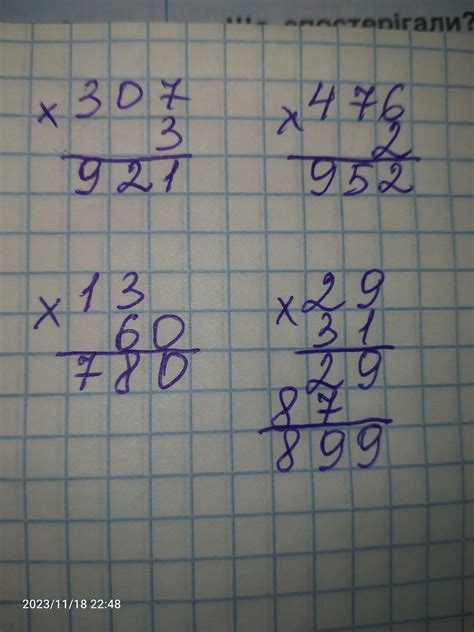 Що спостерігали?
× 307
3
921
× 476
2
952
× 13
60
780
× 29
31
29
87
899
2023/11/18 22:48